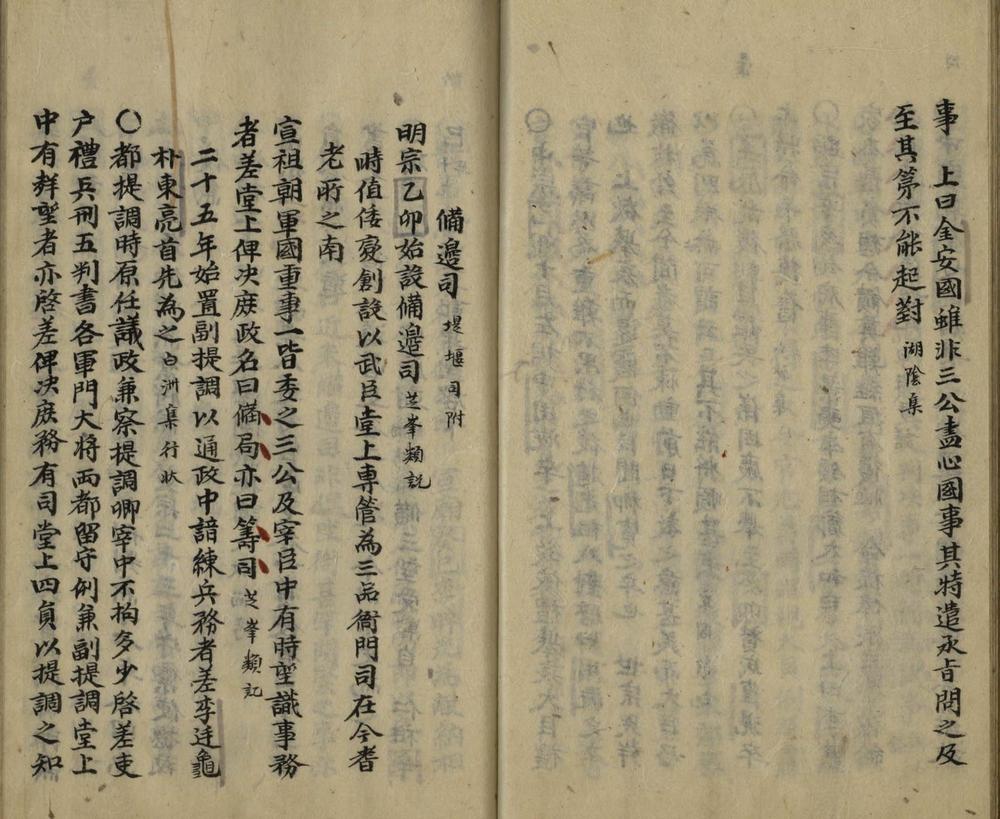 事 上曰金安國雖非三公盡心國事其特遣承旨問之及
至其第不能起對 湖陰集
備邊司 堤堰司附
明宗乙卯始設備邊司 芝峯類說
時值倭變創設以武臣堂上專管為三品衙門司在今耆
老所之南
宣祖朝軍國重事一皆委之三公及宰臣中有時望識事務
者差堂上俾決庶政名曰備局亦曰籌司 芝峯類記
二十五年始置副提調以通政中諳練兵務者差李廷龜
朴東亮首先為之 白洲集行狀
〇都提調時原任議政兼察提調卿宰中不拘多少啓差吏
户禮兵刑五判書各軍門大将両都留守例兼副提調堂上
中有群望者亦啓差俾決庶務有司堂上四員以提調之知